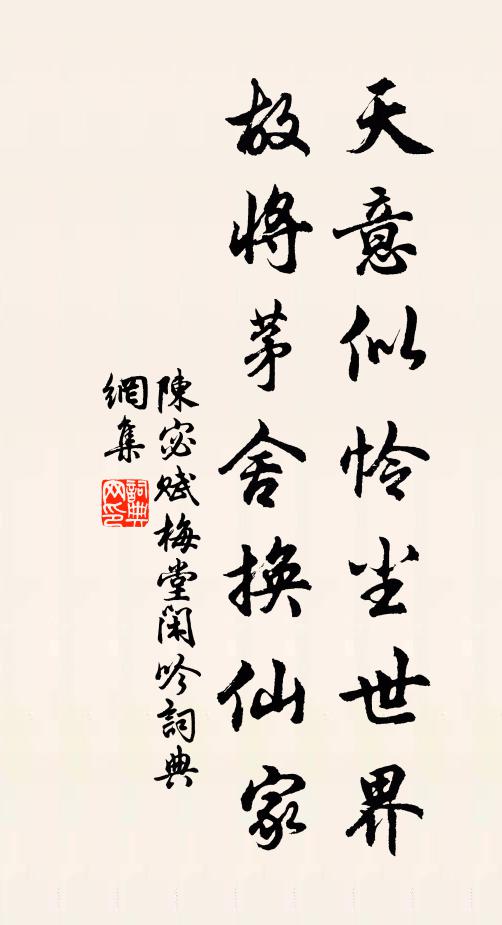 天意似怜尘世界
故將茅舍換仙家
陳宓賦梅堂閑吟詞典
網集
詞典網印